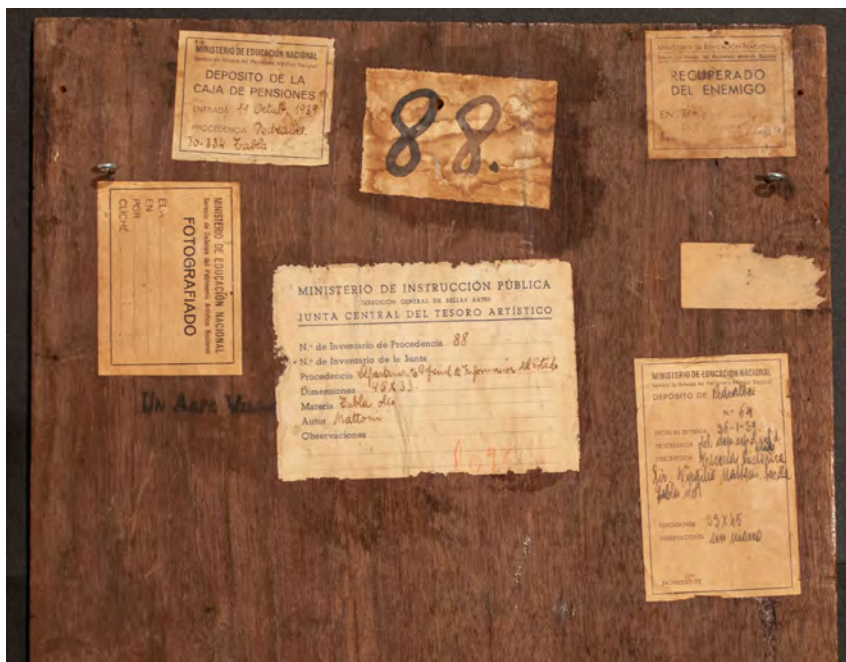 MINISTERIO DE EDUCACIÓN NACIONAL
Servicio de Defensa del Patrimonio Artístico Nacional
DEPOSITO DE LA
CAJA DE PENSIONES
ENTRADA 11 Octub. 1939
PROCEDENCIA Pedralbes
Tabla.
88.
MINISTERIO DE EDUCACIÓN NACIONAL
Servicio de Defensa del Patrimonio Artístico Nacional
RECUPERADO
DEL ENEMIGO
EN
MINISTERIO DE EDUCACIÓN NACIONAL
Servicio de Defensa del Patrimonio Artístico Nacional
FOTOGRAFIADO
EL
EN
POR
CLICHÉ
MINISTERIO DE INSTRUCCIÓN PÚBLICA
DIRECCIÓN GENERAL DE BELLAS ARTES
JUNTA CENTRAL DEL TESORO ARTÍSTICO
N.º de Inventario de Procedencia 88
N.º de Inventario de la Junta
Procedencia Especial de Información del Estado
Dimensiones 45 X 33.
Materia Tabla oleo
Autor Mattoni
Observaciones
MINISTERIO DE EDUCACIÓN NACIONAL
Servicio de Defensa del Patrimonio Artístico Nacional
DEPÓSITO DE Pedralbes
N.º 64
FECHA DE ENTRADA
PROCEDENCIA
DESCRIPCIÓN
Virgilio Mattoni Sevilla
Tabla
DIMENSIONES 33 X 45
OBSERVACIONES sin marco
PROPIEDAD DE